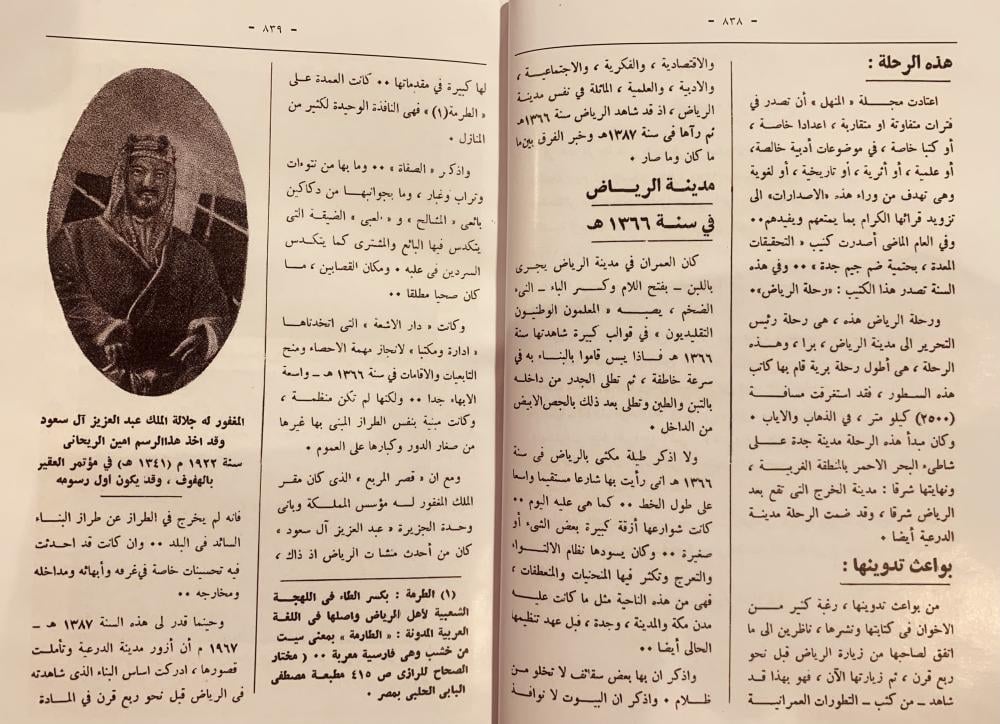 - ٨٣٨ -
هذه الرحلة :
اعتادت مجلة « المنهل » أن تصدر في
فترات متفاوتة او متقاربة ، اعدادا خاصة ،
أو كتبا خاصة ، في موضوعات أدبية خالصة،
أو علمية ، أو أثرية ، أو تاريخية ، أو لغوية
وهى تهدف من وراء هذه «الاصدارات» الى
تزويد قرائها الكرام بما يمتعهم ويفيدهم٠٠
وفي العام الماضى أصدرت كتيب « التحقيقات
المعدة ، بحتمية ضم جيم جدة » ٠٠ وفي هذه
السنة تصدر هذا الكتيب : «رحلة الرياض»٠
ورحلة الرياض هذه ، هى رحلة رئيس
التحرير الى مدينة الرياض ، برا ، وهـذه
الرحلة ، هى أطول رحلة برية قام بها كاتب
هذه السطور ، فقد استغرقت مسافـة
(٢٥٠٠) كيلو متر ، في الذهاب والاياب ٠
وكان مبدأ هذه الرحلة مدينة جدة عـلى
شاطىء البحر الاحمر بالمنطقة الغربيـة ،
ونهايتها شرقا : مدينة الخرج التى تقع بعد
الرياض شرقا ، وقد ضمت الرحلة مدينة
الدرعية أيضا ٠
بواعث تدوينها :
من بواعث تدوينها ، رغبة كثير مـن
الاخوان فى كتابتها ونشرها ، ناظرين الى ما
اتفق لصاحبها من زيارة الرياض قبل نحو
ربع قرن ، ثم زيارتها الآن ، فهو بهذا قـد
شاهد ــ من كثب ــ التطورات العمرانيـة
والاقتصادية ، والفكرية ، والاجتماعيـة ،
والادبية ، والعلمية ، الماثلة في نفس مدينـة
الرياض ، اذ قد شاهد الرياض سنة ١٣٦٦هـ
ثم رآها فى سنة ١٣٨٧هـ وخبر الفرق بين ما
ما كان وما صار ٠
مدينة الريـاض
في سنـة ١٣٦٦ هـ
كان العمران في مدينة الرياض يجـرى
باللبن ــ بفتح اللام وكـسر الباء ــ النىء
الضخم ، يصبـه « المعلمون الوطنيـون
التقليديون » في قوالب كبيرة شاهدتها سنة
١٣٦٦ هـ فـاذا يبس قاموا بالبنـاء به في
سرعة خاطفة ، ثم تطلى الجدر من داخلـه
بالتبن والطين وتطلى بعد ذلك بالجص الابيض
من الداخل ٠
ولا اذكر طيلة مكثى بالرياض فى سنة
١٣٦٦ هـ انى رأيت بها شارعا مستقيما واسعا
على طول الخط ٠٠ كما هى عليه اليوم ٠٠
كانت شوارعها أزقة كبيرة بعض الشىء أو
صغيرة ٠٠ وكان يسودها نظام الالتـواء
والتعرج وتكثر فيها المنحنيات والمنعطفات ،
فهى من هذه الناحية مثل ما كانت عليـه
مدن مكة والمدينة ، وجدة ، قبل عهد تنظيمها
الحالى أيضـا ٠٠
واذكر ان بها بعض سقائف لا تخلو مـن
ظـلام ٠ واذكر ان البيوت لا نوافـذ
- ٨٣٩ -
لها كبيرة في مقدماتها ٠٠ كانت العمدة على
« الطرمة(١) » فهى النافذة الوحيدة لكثير من
المنازل ٠
واذكـر « الصفاة » ٠٠ وما بها من نتوءات
وتراب وغبار ، وما بجوانبهـا من دكاكين
بائعى « المشالح » و « العبى » الضيقة التى
يتكدس فيها البائع والمشترى كما يتكـدس
السردين فى علبه ٠ ومكان القصابين ، مـا
كان صحيا مطلقا ٠٠
وكانت « دار الاشعة » التى اتخذناهـا
« ادارة ومكتبا » لانجاز مهمة الاحصاء ومنح
التابعيات والاقامات في سنة ١٣٦٦ هـ ــ واسعة
الابهاء جدا ٠٠ ولكنها لم تكن منظمـة ،
وكانت مبنية بنفس الطراز المبنى بها غيرها
من صغار الدور وكبارها على العموم ٠
ومع ان « قصر المربع » الذى كان مقـر
الملك المغفور لـه مؤسس المملكـة وبانى
وحدة الجزيرة « عبد العزيز آل سعود ،
كان من أحدث منشآت الرياض اذ ذاك ،
(١) الطرمة : بكسر الطاء فى اللهجـة
الشعبية لأهل الرياض واصلها فى اللغة
العربية المدونة : « الطارمة » بمعنى بيت
من خشب وهى فارسية معربة ٠٠ ( مختار
الصحاح للرازى ص ٤١٥ مطبعة مصطفى
البابى الحلبى بمصر ٠
المغفور له جلالة الملك عبد العزيز آل سعود
وقد اخذ هذا الرسم امين الريحانى
سنة ١٩٢٢ م (١٣٤١ هـ) في مؤتمر العقير
بالهفوف ، وقد يكون اول رسومه
فانه لم يخرج في الطراز عن طراز البنـاء
السائد فى البلد ٠٠ وان كانت قد احدثت
فيه تحسينات خاصة في غرفه وأبهائه ومداخله
ومخارجه ٠٠
وحينما قدر لى هذه السنة ١٣٨٧ هـ ــ
١٩٦٧ م أن أزور مدينة الدرعية وتأملت
قصورها ، ادركت اساس البناء الذى شاهدته
فى الرياض قبل نحو ربع قرن في المـادة